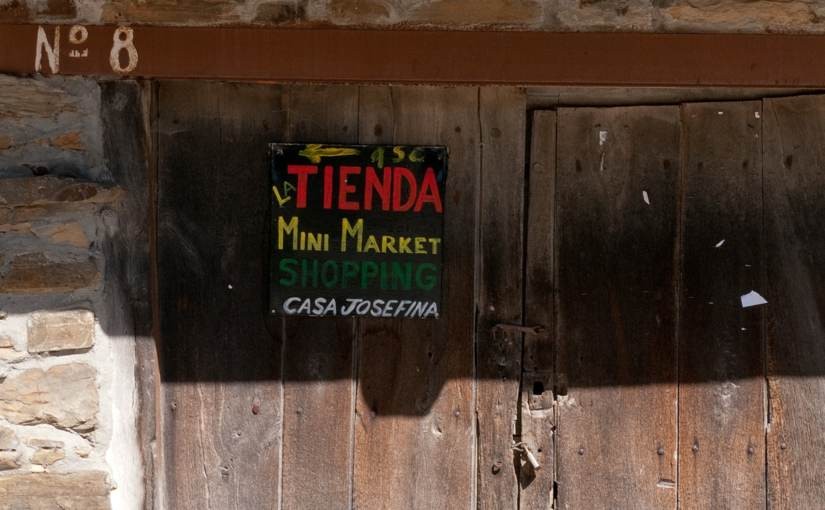 Nº 8
LA TIENDA
MINI MARKET
SHOPPING
CASA JOSEFINA